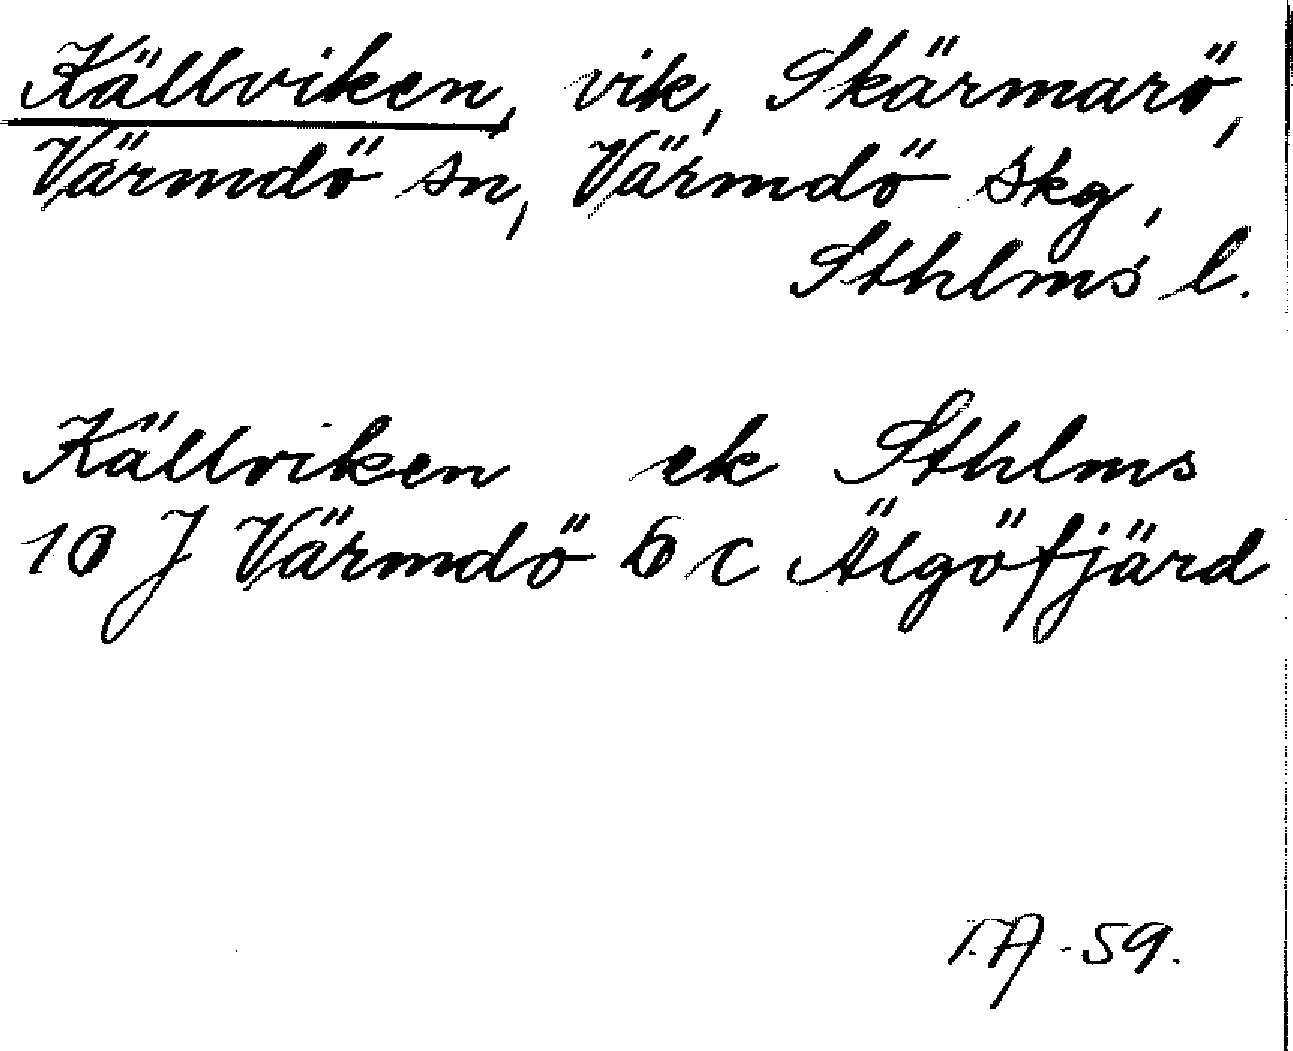 Källviken, vik, Skärmarö,
Värmdö sn, Värmdö skg,
Sthlms l.
Källviken ek Sthlms
10 J Värmdö 6 c Älgöfjärd
T.A -59.